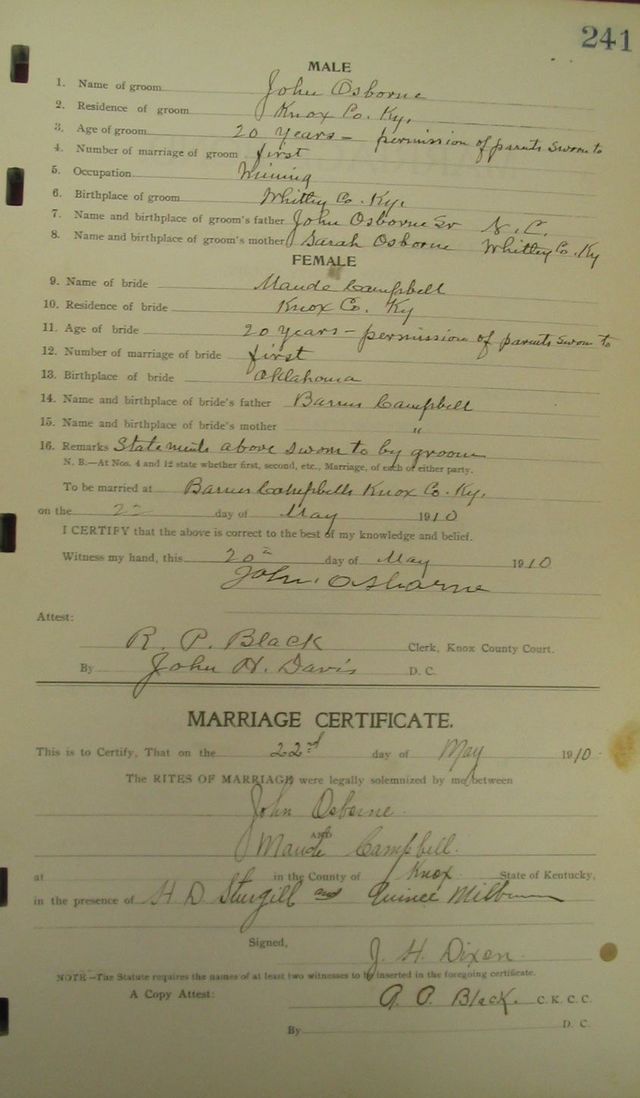 241
MALE
1. Name of groom John Osborne
2. Residence of groom Knox Co. Ky.
3. Age of groom 20 years - permission of parents sworn to
4. Number of marriage of groom first
5. Occupation Mining
6. Birthplace of groom Whitley Co. Ky.
7. Name and birthplace of groom's father John Osborne Sr N. C.
8. Name and birthplace of groom's mother Sarah Osborne Whitley Co. Ky
FEMALE
9. Name of bride Maude Campbell
10. Residence of bride Knox Co. Ky
11. Age of bride 20 years - permission of parents sworn to
12. Number of marriage of bride first
13. Birthplace of bride Oklahoma
14. Name and birthplace of bride's father Campbell
15. Name and birthplace of bride's mother "
16. Remarks Statements above sworn to by groom
N. B.—At Nos. 4 and 12 state whether first, second, etc., Marriage, of each of either party.
To be married at Campbells Knox Co. Ky.
on the 22 day of May 1910
I CERTIFY that the above is correct to the best of my knowledge and belief.
Witness my hand, this 20th day of May 1910
John Osborne
Attest:
R. P. Black Clerk, Knox County Court.
By John H. Davis D. C.
MARRIAGE CERTIFICATE.
This is to Certify, That on the 22nd day of May 1910
The RITES OF MARRIAGE were legally solemnized by me between
John Osborne
AND
Maude Campbell.
at in the County of Knox State of Kentucky,
in the presence of H. D. Sturgill and Milburn
Signed,
J. H. Dixon
NOTE—The Statute requires the names of at least two witnesses to be inserted in the foregoing certificate.
A Copy Attest: Black. C. K. C. C.
By D. C.